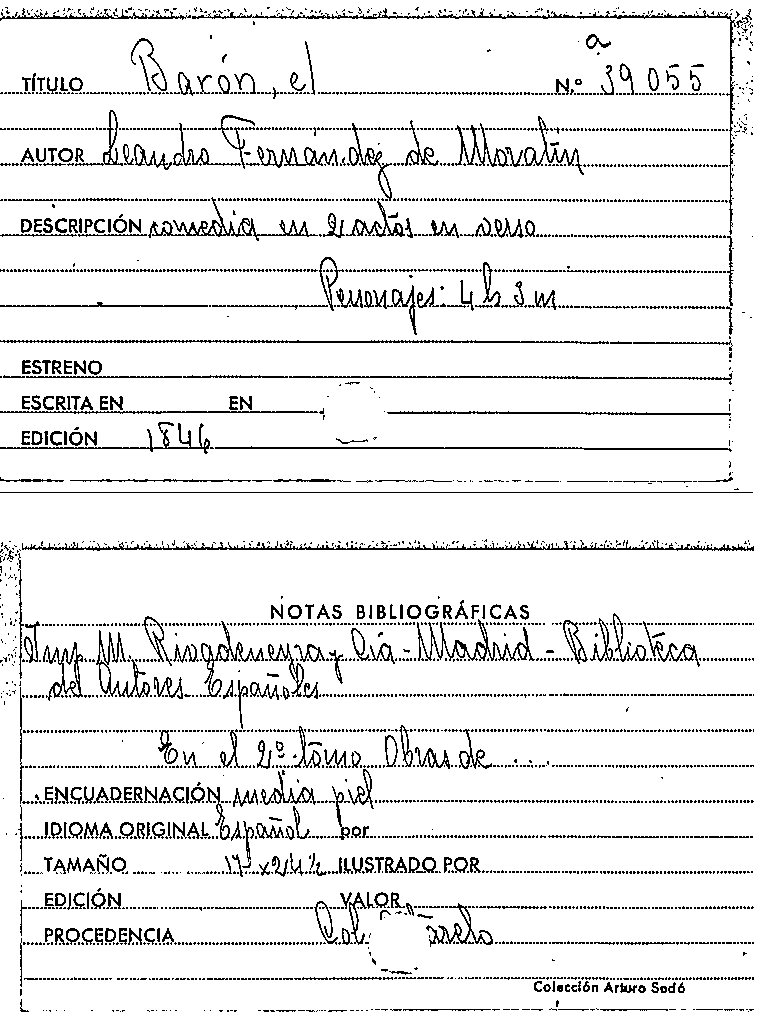 a
TÍTULO Barón, el N.º 39055
AUTOR Leandro Fernández de Moratín
DESCRIPCIÓN comedia en 2 actos en verso
Personajes: 4 h 3 m
ESTRENO
ESCRITA EN EN
EDICIÓN 1846
NOTAS BIBLIOGRÁFICAS
Imp. M. Rivadeneyra y Cía - Madrid - Biblioteca
del Autores Españoles
En el 2º tomo Obras de ...
ENCUADERNACIÓN media piel
IDIOMA ORIGINAL Español por
TAMAÑO 17 x 24 ½ ILUSTRADO POR
EDICIÓN VALOR
PROCEDENCIA Col. arelo
Colección Arturo Sedó